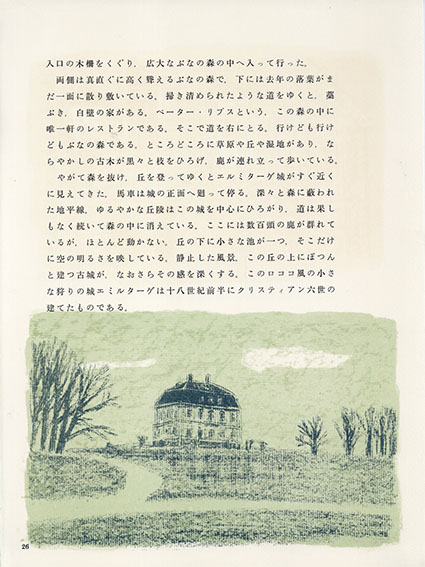 入口の木柵をくぐり，広大なぶなの森の中へ入って行った．
両側は真直ぐに高く聳えるぶなの森で，下には去年の落葉がま
だ一面に散り敷いている．掃き清められたような道をゆくと，藁
ぶき，白壁の家がある．ペーター・リプスという，この森の中に
唯一軒のレストランである．そこで道を右にとる．行けども行け
どもぶなの森である．ところどころに草原や丘や湿地があり，な
らやかしの古木が黒々と枝をひろげ，鹿が連れ立って歩いている．
やがて森を抜け，丘を登ってゆくとエルミターゲ城がすぐ近く
に見えてきた．馬車は城の正面へ廻って停る．深々と森に蔽われ
た地平線．ゆるやかな丘陵はこの城を中心にひろがり，道は果し
もなく続いて森の中に消えている．ここには数百頭の鹿が群れて
いるが，ほとんど動かない．丘の下に小さな池が一つ，そこだけ
に空の明るさを映している．静止した風景．この丘の上にぽつん
と建つ古城が，なおさらその感を深くする．このロココ風の小さ
な狩りの城エミルターゲは十八世紀前半にクリスティアン六世の
建てたものである．
26